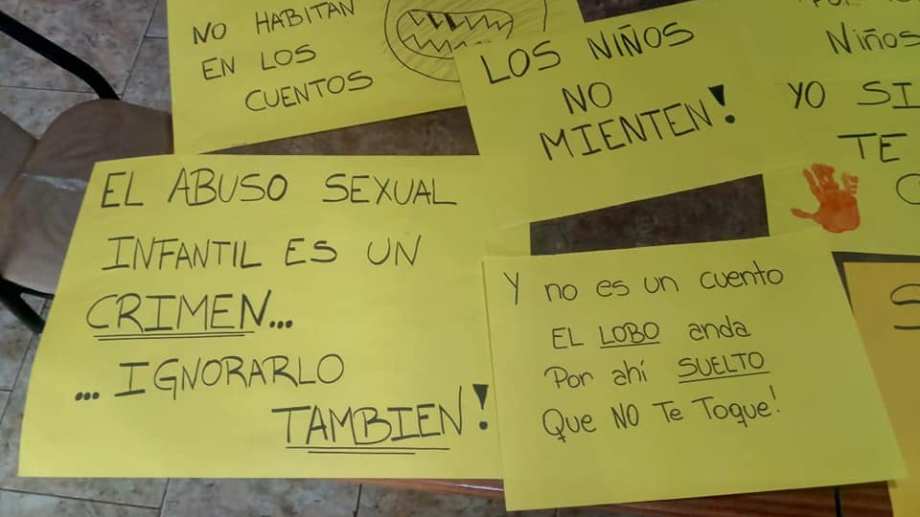 NO HABITAN
EN LOS
CUENTOS
LOS NIÑOS
NO
MIENTEN!
Niños
YO SI
TE
EL ABUSO SEXUAL
INFANTIL ES UN
CRIMEN...
...IGNORARLO
TAMBIEN!
Y no es un cuento
EL LOBO anda
Por ahí SUELTO
Que NO Te Toque!